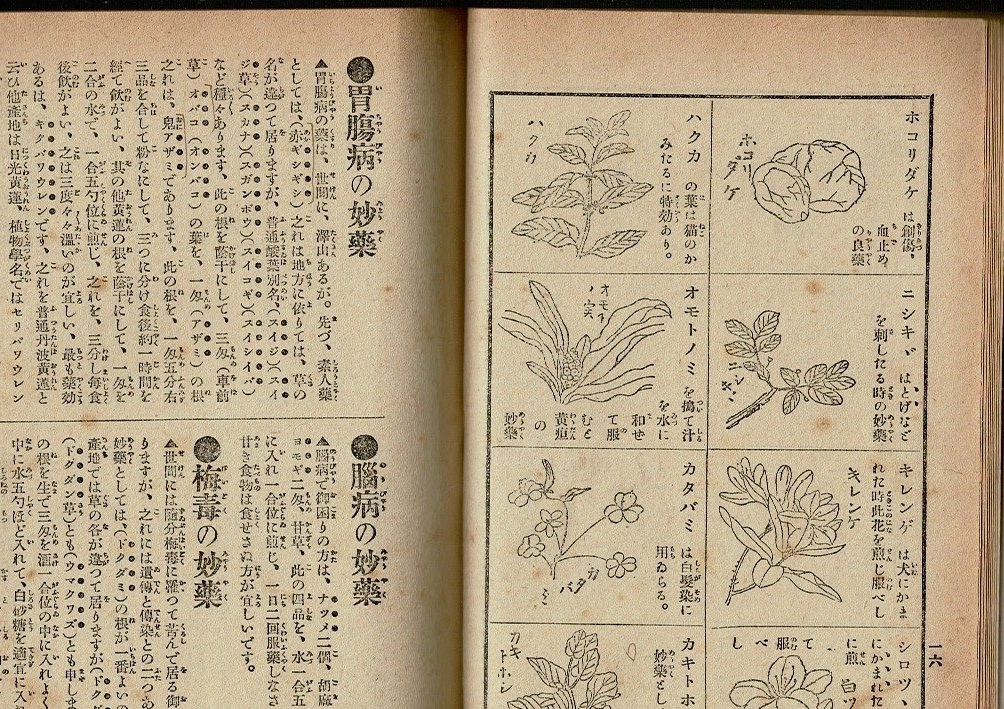 一六
ホコリダケ は創傷、
血止め
の良薬
ホコリダケ
ハクカ の葉は猫のか
みたるに特効あり。
ハクカ
ニシキギ はとげなど
を刺したる時の妙薬
ニシキギ
オモトノミ を搗て汁
を水に
和せ
て服
むと
黄疸
の
妙薬
オモトノ実
キレンゲ は犬にかま
れた時此花を煎じ服べし
キレンゲ
カタバミ は白髪染に
用ゐらる。
カタバミ
シロツ
にかまれた
に煎
て服べし
カキトホ
妙薬とし
カキトホシ
●胃腸病の妙薬
▲胃腸病の薬は、世間に、澤山あるが。先づ、素人薬
としては、(赤ギシギシ)之れは地方に依りては、草の
名が違つて居りますが、普通酸葉別名、(スイジ)(スイ
ジ草)(スカナ)(スガンボウ)(スイコギ)(スイシイバ)
など種々あります、此の根を蔭干にして、三匁(車前
草)オバコ(オンバコ)の葉を、一匁(アザミ)の根
之れは、鬼アザミであります、此の根を、一匁五分右
三品を合して粉なにして、三つに分け食後約一時間を
經て飲がよい、其の他黄蓮の根を蔭干にして、一匁を
二合の水で、一合五勺位に煎じ、之れを、三分し毎食
後飲がよい、之は三度々々溫いのが宜しい、最も薬効
あるは、キクバワウレンです、之れを普通丹波黄蓮と
云ひ他産地は日光黄蓮、植物學名ではセリバワウレン
●腦病の妙薬
▲腦病で御困りの方は、ナツメ二個、胡麻
ヨモギ二匁、甘草、此の四品を、水一合五
に入れ一合位に煎じ、一日二回服薬しなさ
甘き食物は食せさぬ方が宜しいです。
●梅毒の妙薬
▲世間には随分梅毒に罹つて苦んで居る御
りますが、之れには遺傳と傳染との二つあ
妙薬としては、(ドクダミ)の根が一番よい
産地では草の各が違つて居りますが(ドクダ
(ドクダン草)とも(ウマクワズ)とも申しま
の根を生で三匁を酒一合位の中に入れよく
中に水五勺ほど入れて、白砂糖を適宜に入